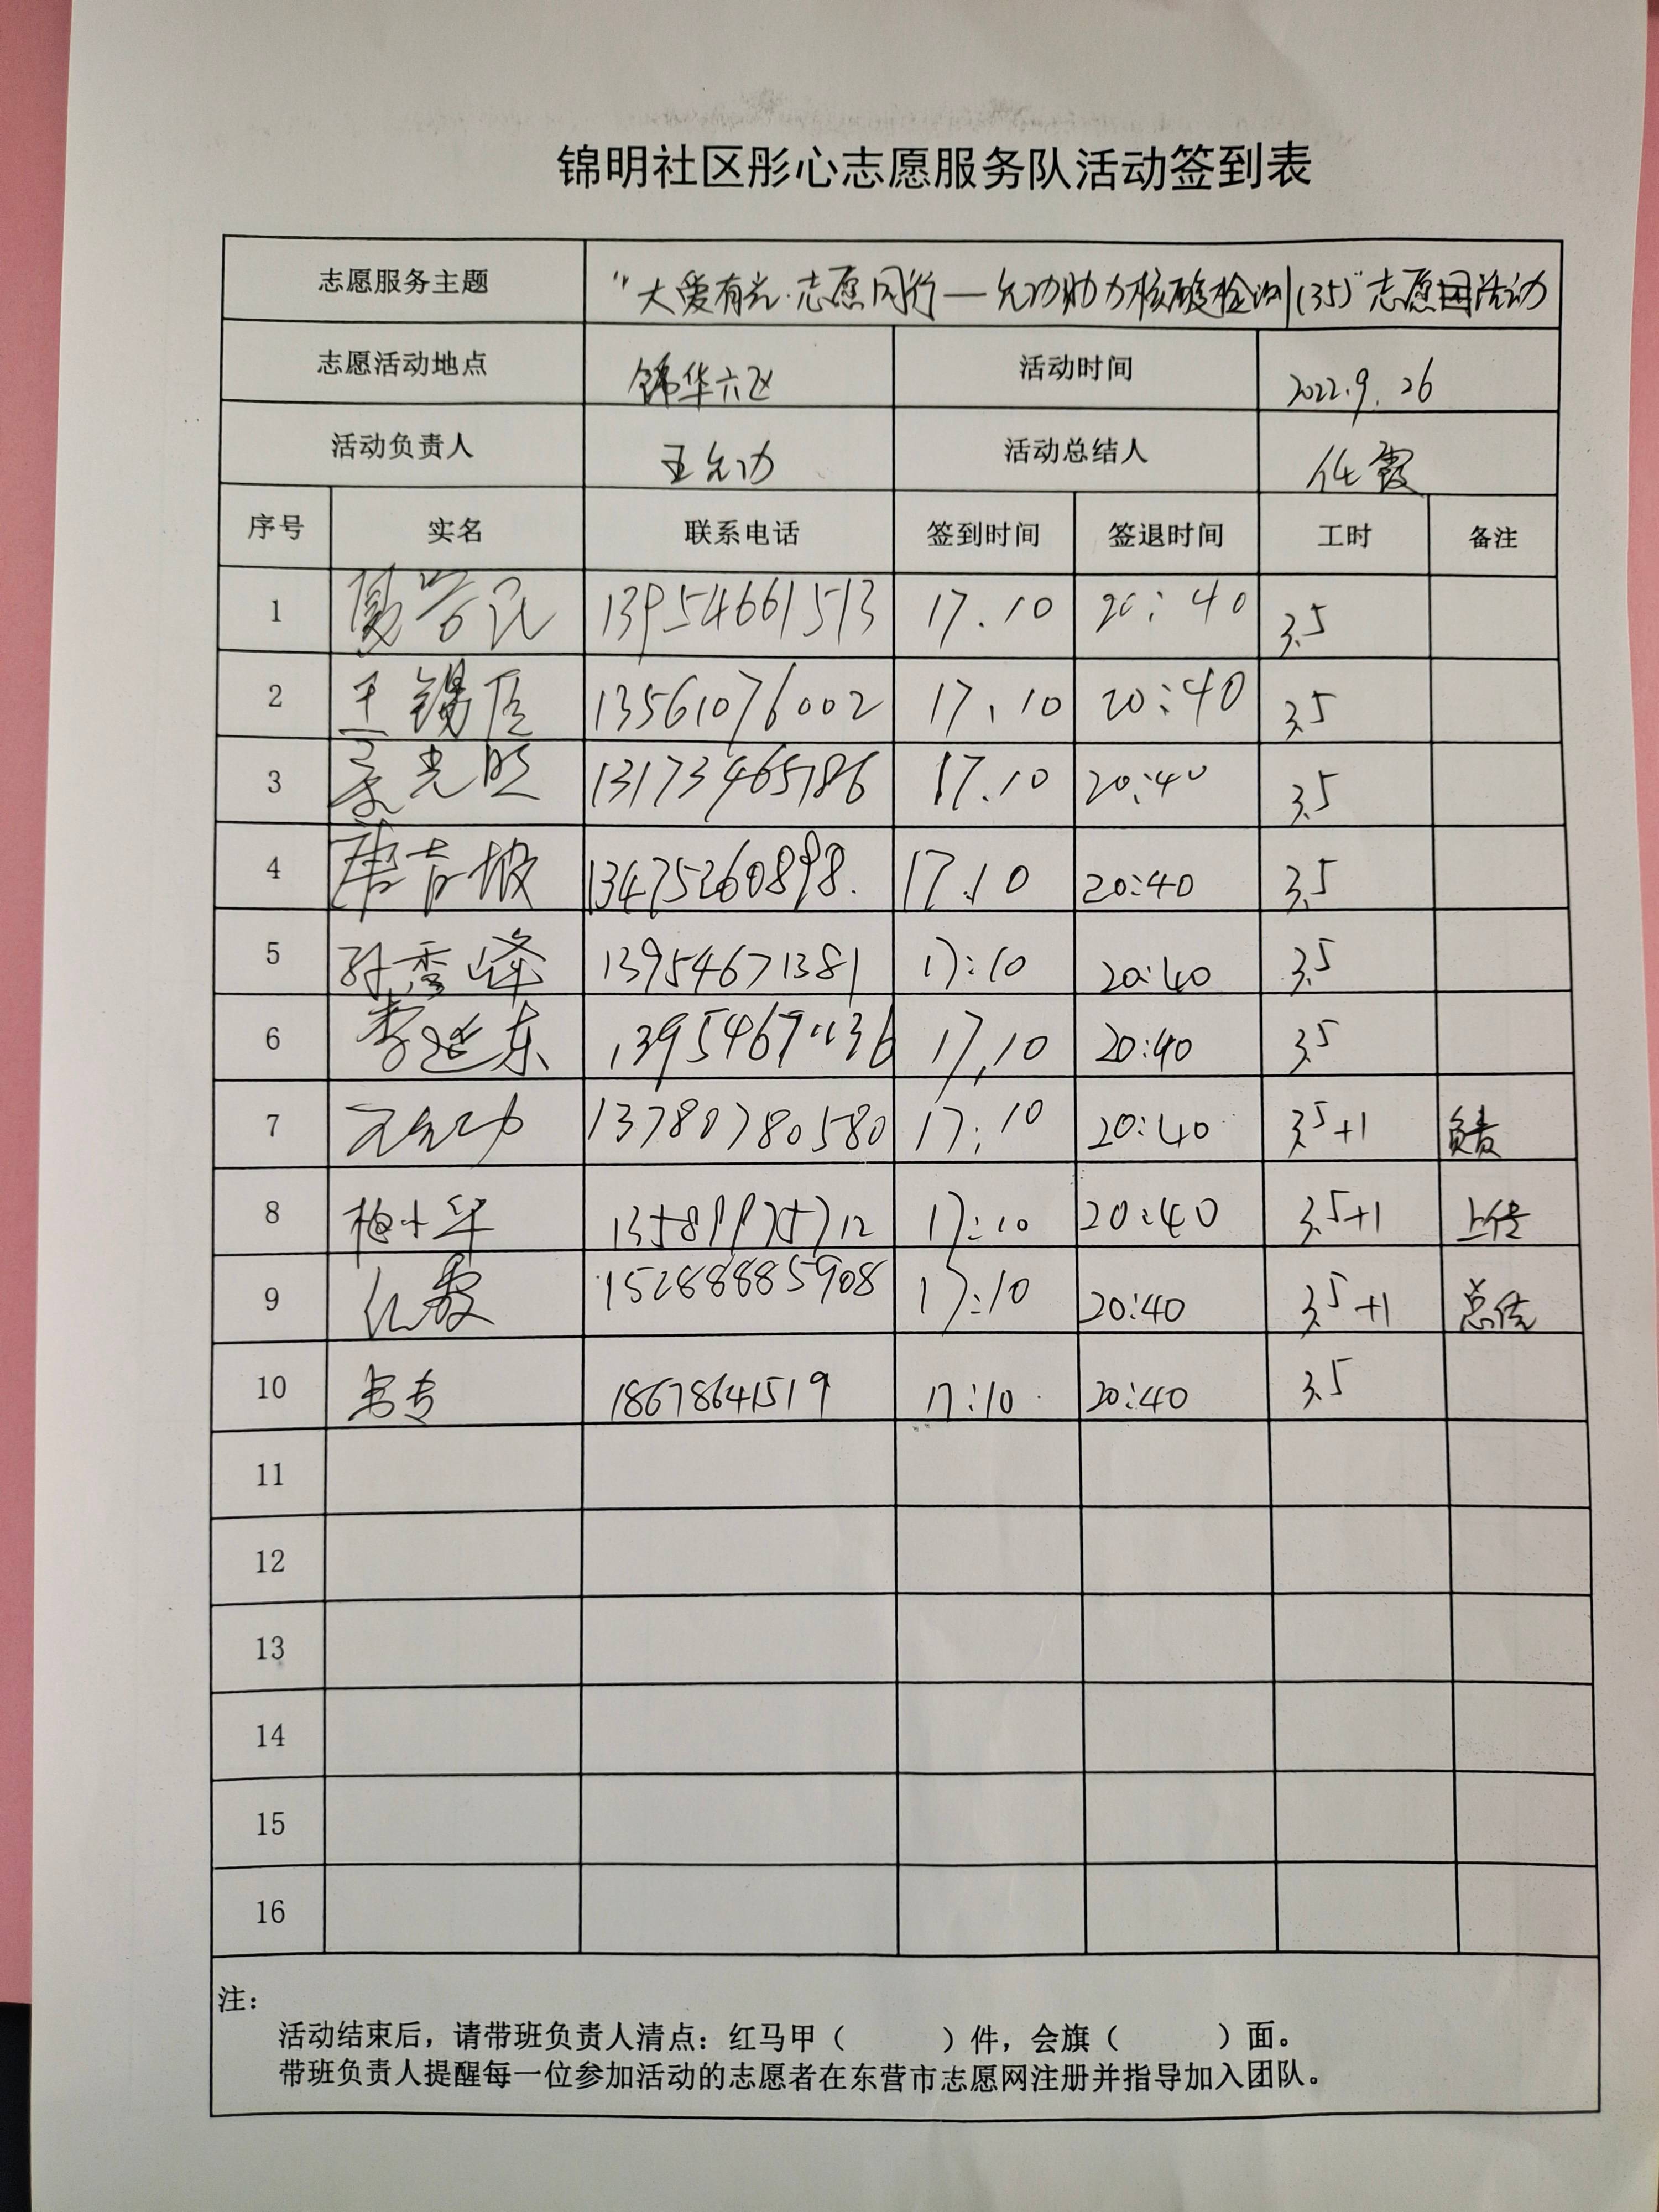 锦明社区彤心志愿服务队活动签到表
志愿服务主题 "大爱有光·志愿同行——允功助力核酸检测(35)"志愿活动
志愿活动地点 锦华六区 活动时间 2022.9.26
活动负责人 王允功 活动总结人 任霞
序号 实名 联系电话 签到时间 签退时间 工时 备注
1 13954661513 17.10 20:40 3.5
2 王锡 13561076002 17.10 20:40 3.5
3 光明 13173465786 17.10 20:40 3.5
4 唐吉坡 13475260898. 17.10 20:40 3.5
5 孙秀峰 13954671381 17:10 20:40 3.5
6 李延东 17.10 20:40 3.5
7 王允功 13780780580 17:10 20:40 3.5+1 负责
8 梅小华 13589975712 17:10 20:40 3.5+1 上传
9 任霞 15288885908 17:10 20:40 3.5+1 总结
10 18678641519 17:10 20:40 3.5
11
12
13
14
15
16
注：
活动结束后，请带班负责人清点：红马甲（ ）件，会旗（ ）面。
带班负责人提醒每一位参加活动的志愿者在东营市志愿网注册并指导加入团队。